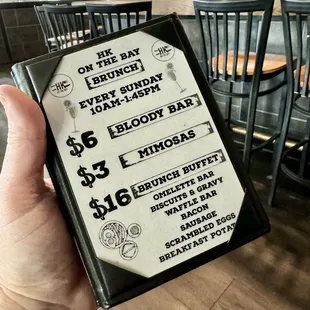 HK
ON THE BAY
BRUNCH
EVERY SUNDAY
10AM-1:45PM
$6 BLOODY BAR
$3 MIMOSAS
$16 BRUNCH BUFFET
OMELETTE BAR
BISCUITS & GRAVY
WAFFLE BAR
BACON
SAUSAGE
SCRAMBLED EGGS
BREAKFAST POTA